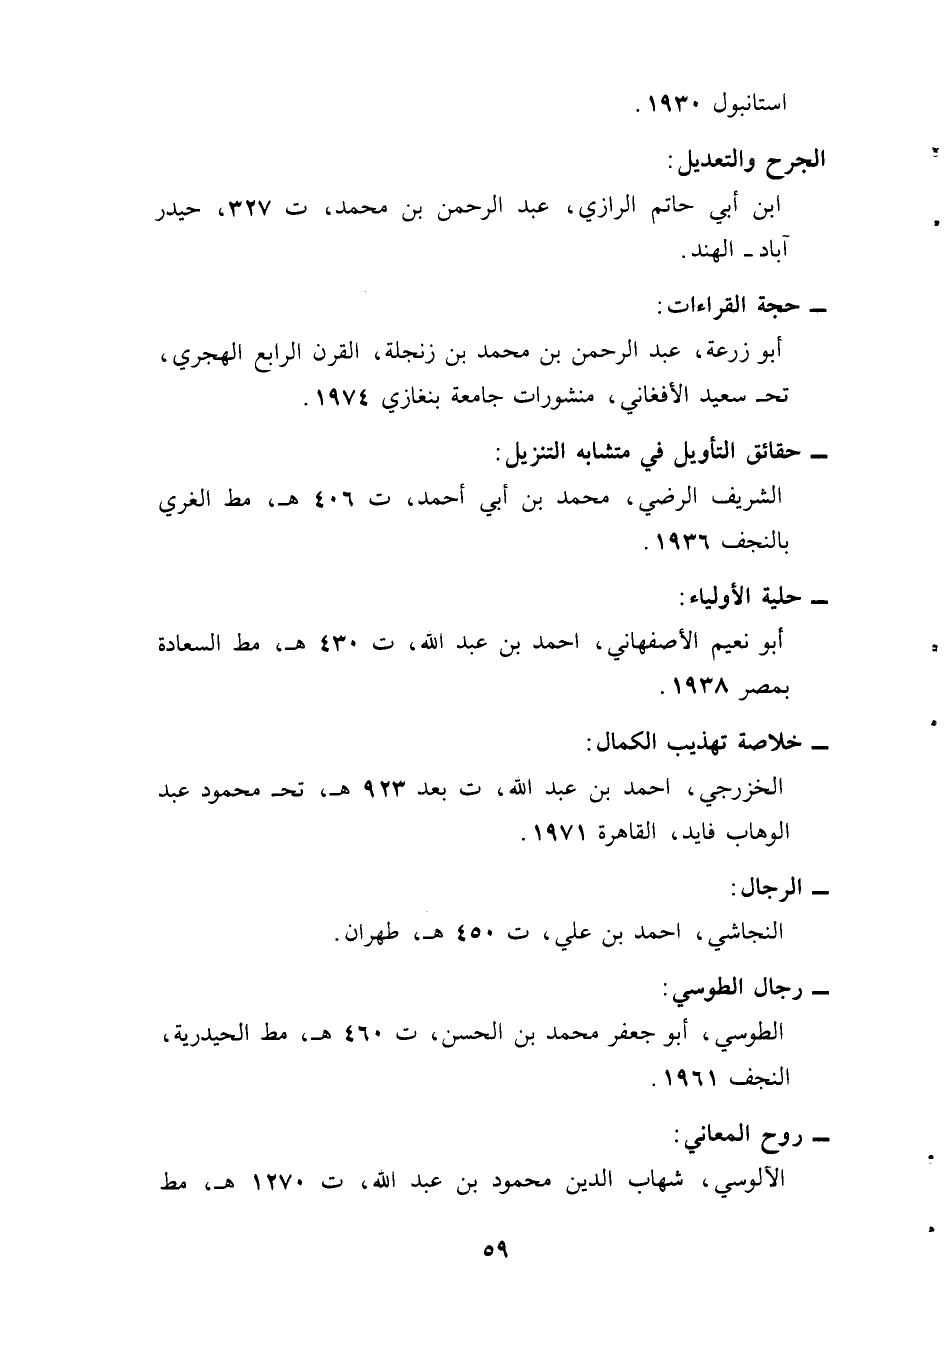 استانبول ١٩٣٠ .
الجرح والتعديل :
ابن أبي حاتم الرازي، عبد الرحمن بن محمد، ت ٣٢٧، حيدر
آباد ـ الهند .
ــ حجة القراءات :
أبو زرعة، عبد الرحمن بن محمد بن زنجلة، القرن الرابع الهجري،
تحـ سعيد الأفغاني، منشورات جامعة بنغازي ١٩٧٤ .
ــ حقائق التأويل في متشابه التنزيل :
الشريف الرضي، محمد بن أبي أحمد، ت ٤٠٦ هـ، مط الغري
بالنجف ١٩٣٦ .
ــ حلية الأولياء :
أبو نعيم الأصفهاني، احمد بن عبد الله، ت ٤٣٠ هـ، مط السعادة
بمصر ١٩٣٨ .
ــ خلاصة تهذيب الكمال :
الخزرجي، احمد بن عبد الله، ت بعد ٩٢٣ هـ، تحـ محمود عبد
الوهاب فايد، القاهرة ١٩٧١ .
ــ الرجال :
النجاشي، احمد بن علي، ت ٤٥٠ هـ، طهران .
ــ رجال الطوسي :
الطوسي، أبو جعفر محمد بن الحسن، ت ٤٦٠ هـ، مط الحيدرية،
النجف ١٩٦١ .
ــ روح المعاني :
الآلوسي، شهاب الدين محمود بن عبد الله، ت ١٢٧٠ هـ، مط
٥٩